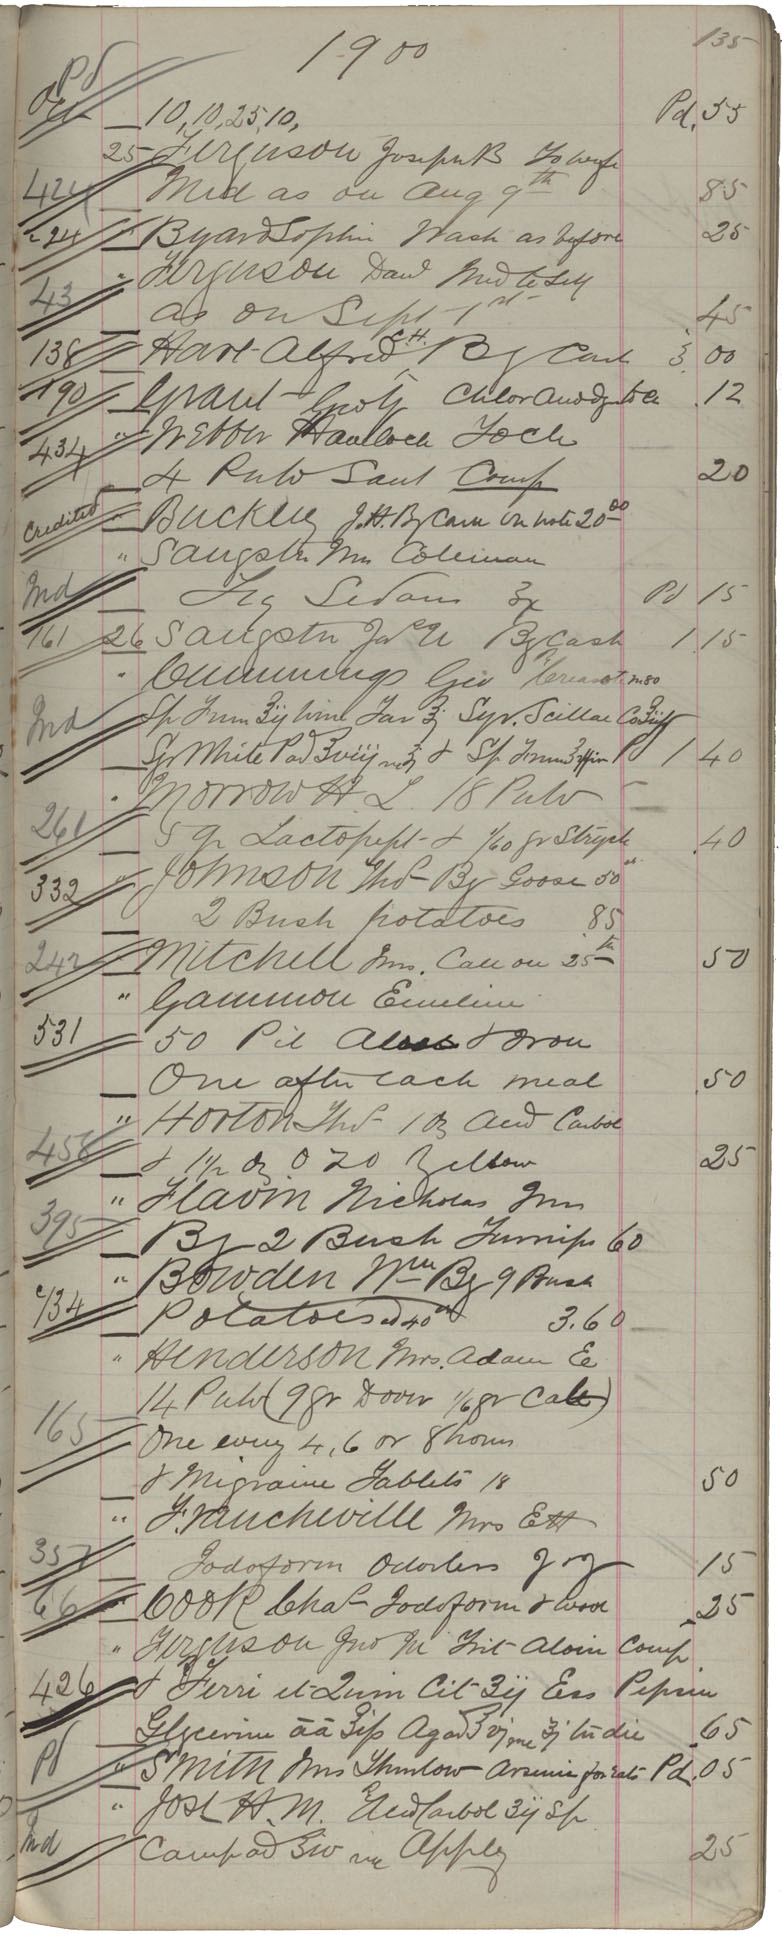 1900 135
Pd
10, 10, 25, 10, Pd. 55
25 Ferguson Joseph B To wife
424 Med as on Aug 9th 85
24 " Byard Sophia Wash as before 25
" Ferguson Davd Med to Self
43 as on Sept 1st 45
138 Hart Alfred C.H. By Cash 3 00
190 Grant Chlor Anodyne to Ca .12
434 " Webber Havelock Foch
4 Pulv Sant Comp 20
Credited " Buckley J.H. By Cash on note 20 00
" Sangster Mrs Coleman
Ind Pd 15
161 26 Sangster Jas N By Cash 1.15
" Cummings Geo Creasot m80
Ind Sp Frum ʒij Vini Tar ℥j Syr. Scillae Co
Syr White P ad ℥viij & Sp Frum Pd 1 40
" Morrow H L. 18 Pulv
261 5 gr Lactopept & 1/60 gr Strych .40
332 " Johnson Thos By Goose 50 cts
2 Bush potatoes .85
242 Mitchell Mrs. Call on 25th 50
" Gammon Emeline
531 50 Pil & Iron
One after each meal .50
" Horton Thos 1 oz Acid Carbol
458 & 1 1/2 oz Yellow 25
" Flavin Nicholas Mrs
395 By 2 Bush Turnips 60
" Bowden Wm By 9 Bush
434 Potatoes ad 40 cts 3.60
" Henderson Mrs. Adam E
14 Pulv (9 gr Dover 1/6 gr Cal)
165 One every 4, 6 or 8 hours
& Migraine Tablets 18 50
" Francheville Mrs E H
357 Iodoform Odorless 15
66 " Cook Chas Iodoform & wool .25
" Ferguson Jno M Trit Aloin Comp
426 & Ferri et Quin Cit ʒij Ess Pepsin
Glycerine āā ℥ifs Aq ad ℥vj me ʒj in die .65
Pd " Smith Mrs Thurlow Arsenic for rats Pd .05
" Jost H. M. Acid Carbol ʒij Sp
Ind Camp ad ℥iv me Apply 25